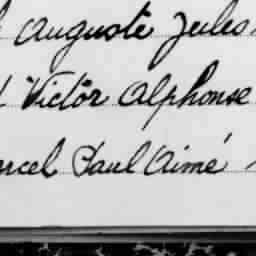 Auguste Jules
Victor Alphonse
arcel Paul Aimé